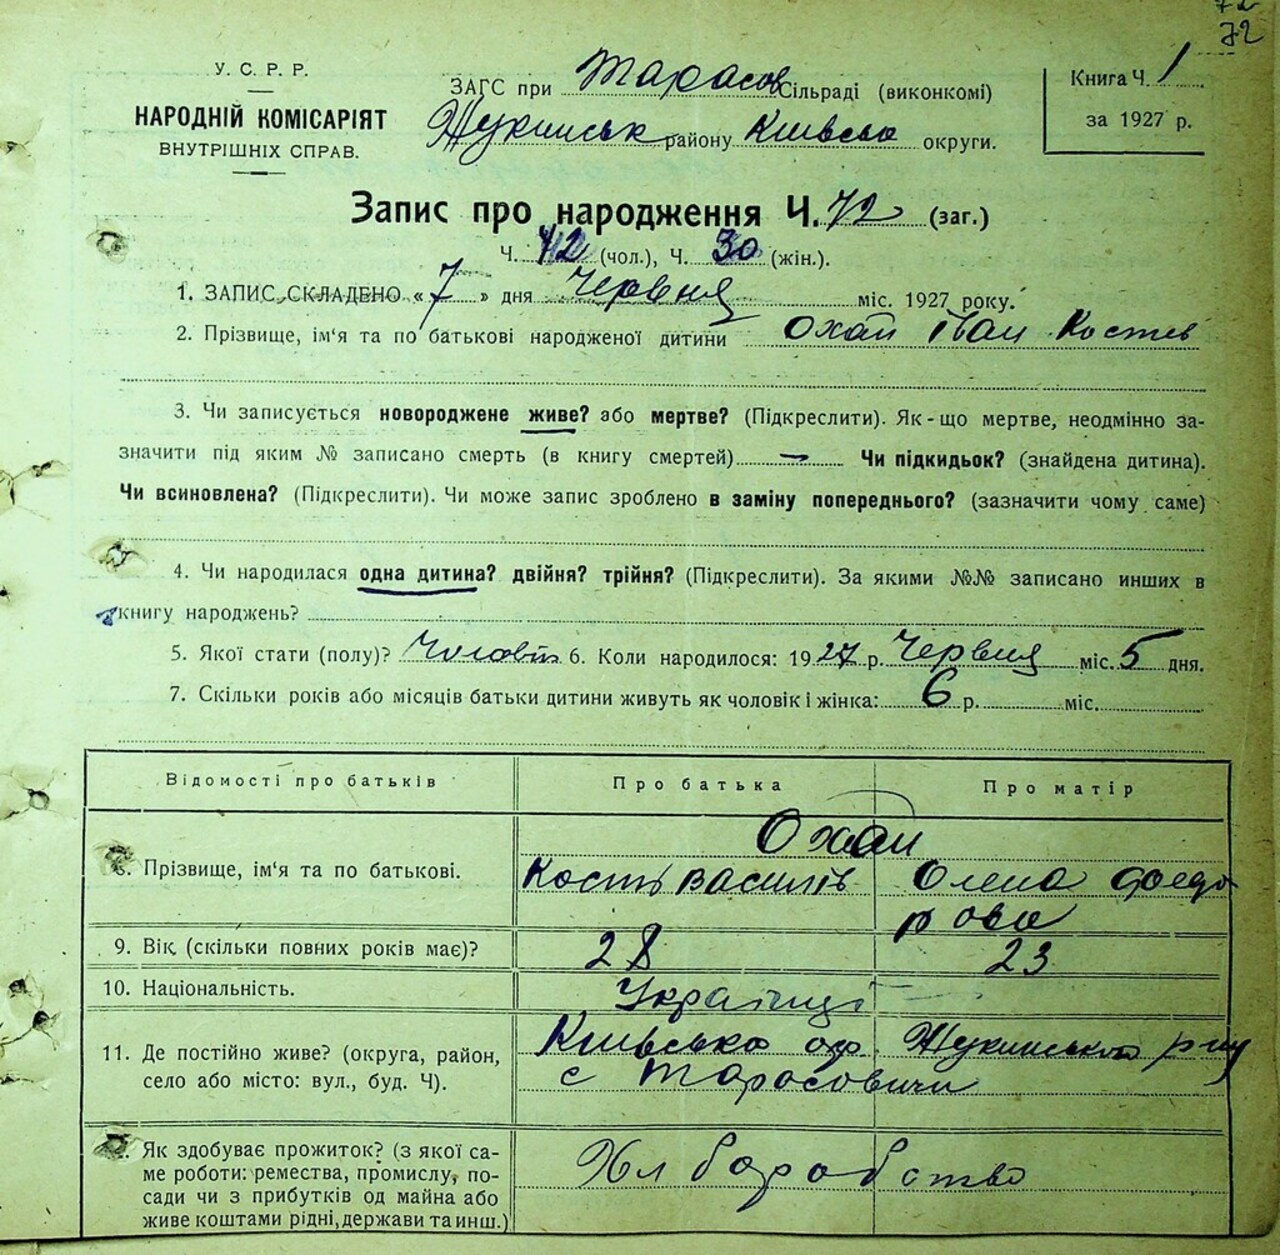 72
72
У. С. Р. Р.
НАРОДНІЙ КОМІСАРІЯТ
ВНУТРІШНІХ СПРАВ.
ЗАГС при Тарасов Сільраді (виконкомі)
Жукинськ району Київсько округи.
Книга Ч. 1
за 1927 р.
Запис про народження Ч. 72 (заг.)
Ч. 42 (чол.), Ч. 30 (жін.).
1. ЗАПИС СКЛАДЕНО «7» дня Червня міс. 1927 року.
2. Прізвище, ім'я та по батькові народженої дитини Охап Іван Костев
3. Чи записується новороджене живе? або мертве? (Підкреслити). Як-що мертве, неодмінно за-
значити під яким № записано смерть (в книгу смертей) — Чи підкидьок? (знайдена дитина).
Чи всиновлена? (Підкреслити). Чи може запис зроблено в заміну попереднього? (зазначити чому саме)
4. Чи народилася одна дитина? двійня? трійня? (Підкреслити). За якими №№ записано инших в
книгу народжень?
5. Якої стати (полу)? Чоловіч 6. Коли народилося: 1927 р. Червня міс. 5 дня.
7. Скільки років або місяців батьки дитини живуть як чоловік і жінка: 6 р. міс.
Відомості про батьків Про батька Про матір
Охап
8. Прізвище, ім'я та по батькові. Кость Василів Олена Федо
рова
9. Вік (скільки повних років має)? 28 23
10. Національність. Українці
11. Де постійно живе? (округа, район, Київсько окр. Жукинського р-ну
село або місто: вул., буд. Ч). с Тарасовичи
12. Як здобуває прожиток? (з якої са- Хлборобство
ме роботи: ремества, промислу, по-
сади чи з прибутків од майна або
живе коштами рідні, держави та инш.)